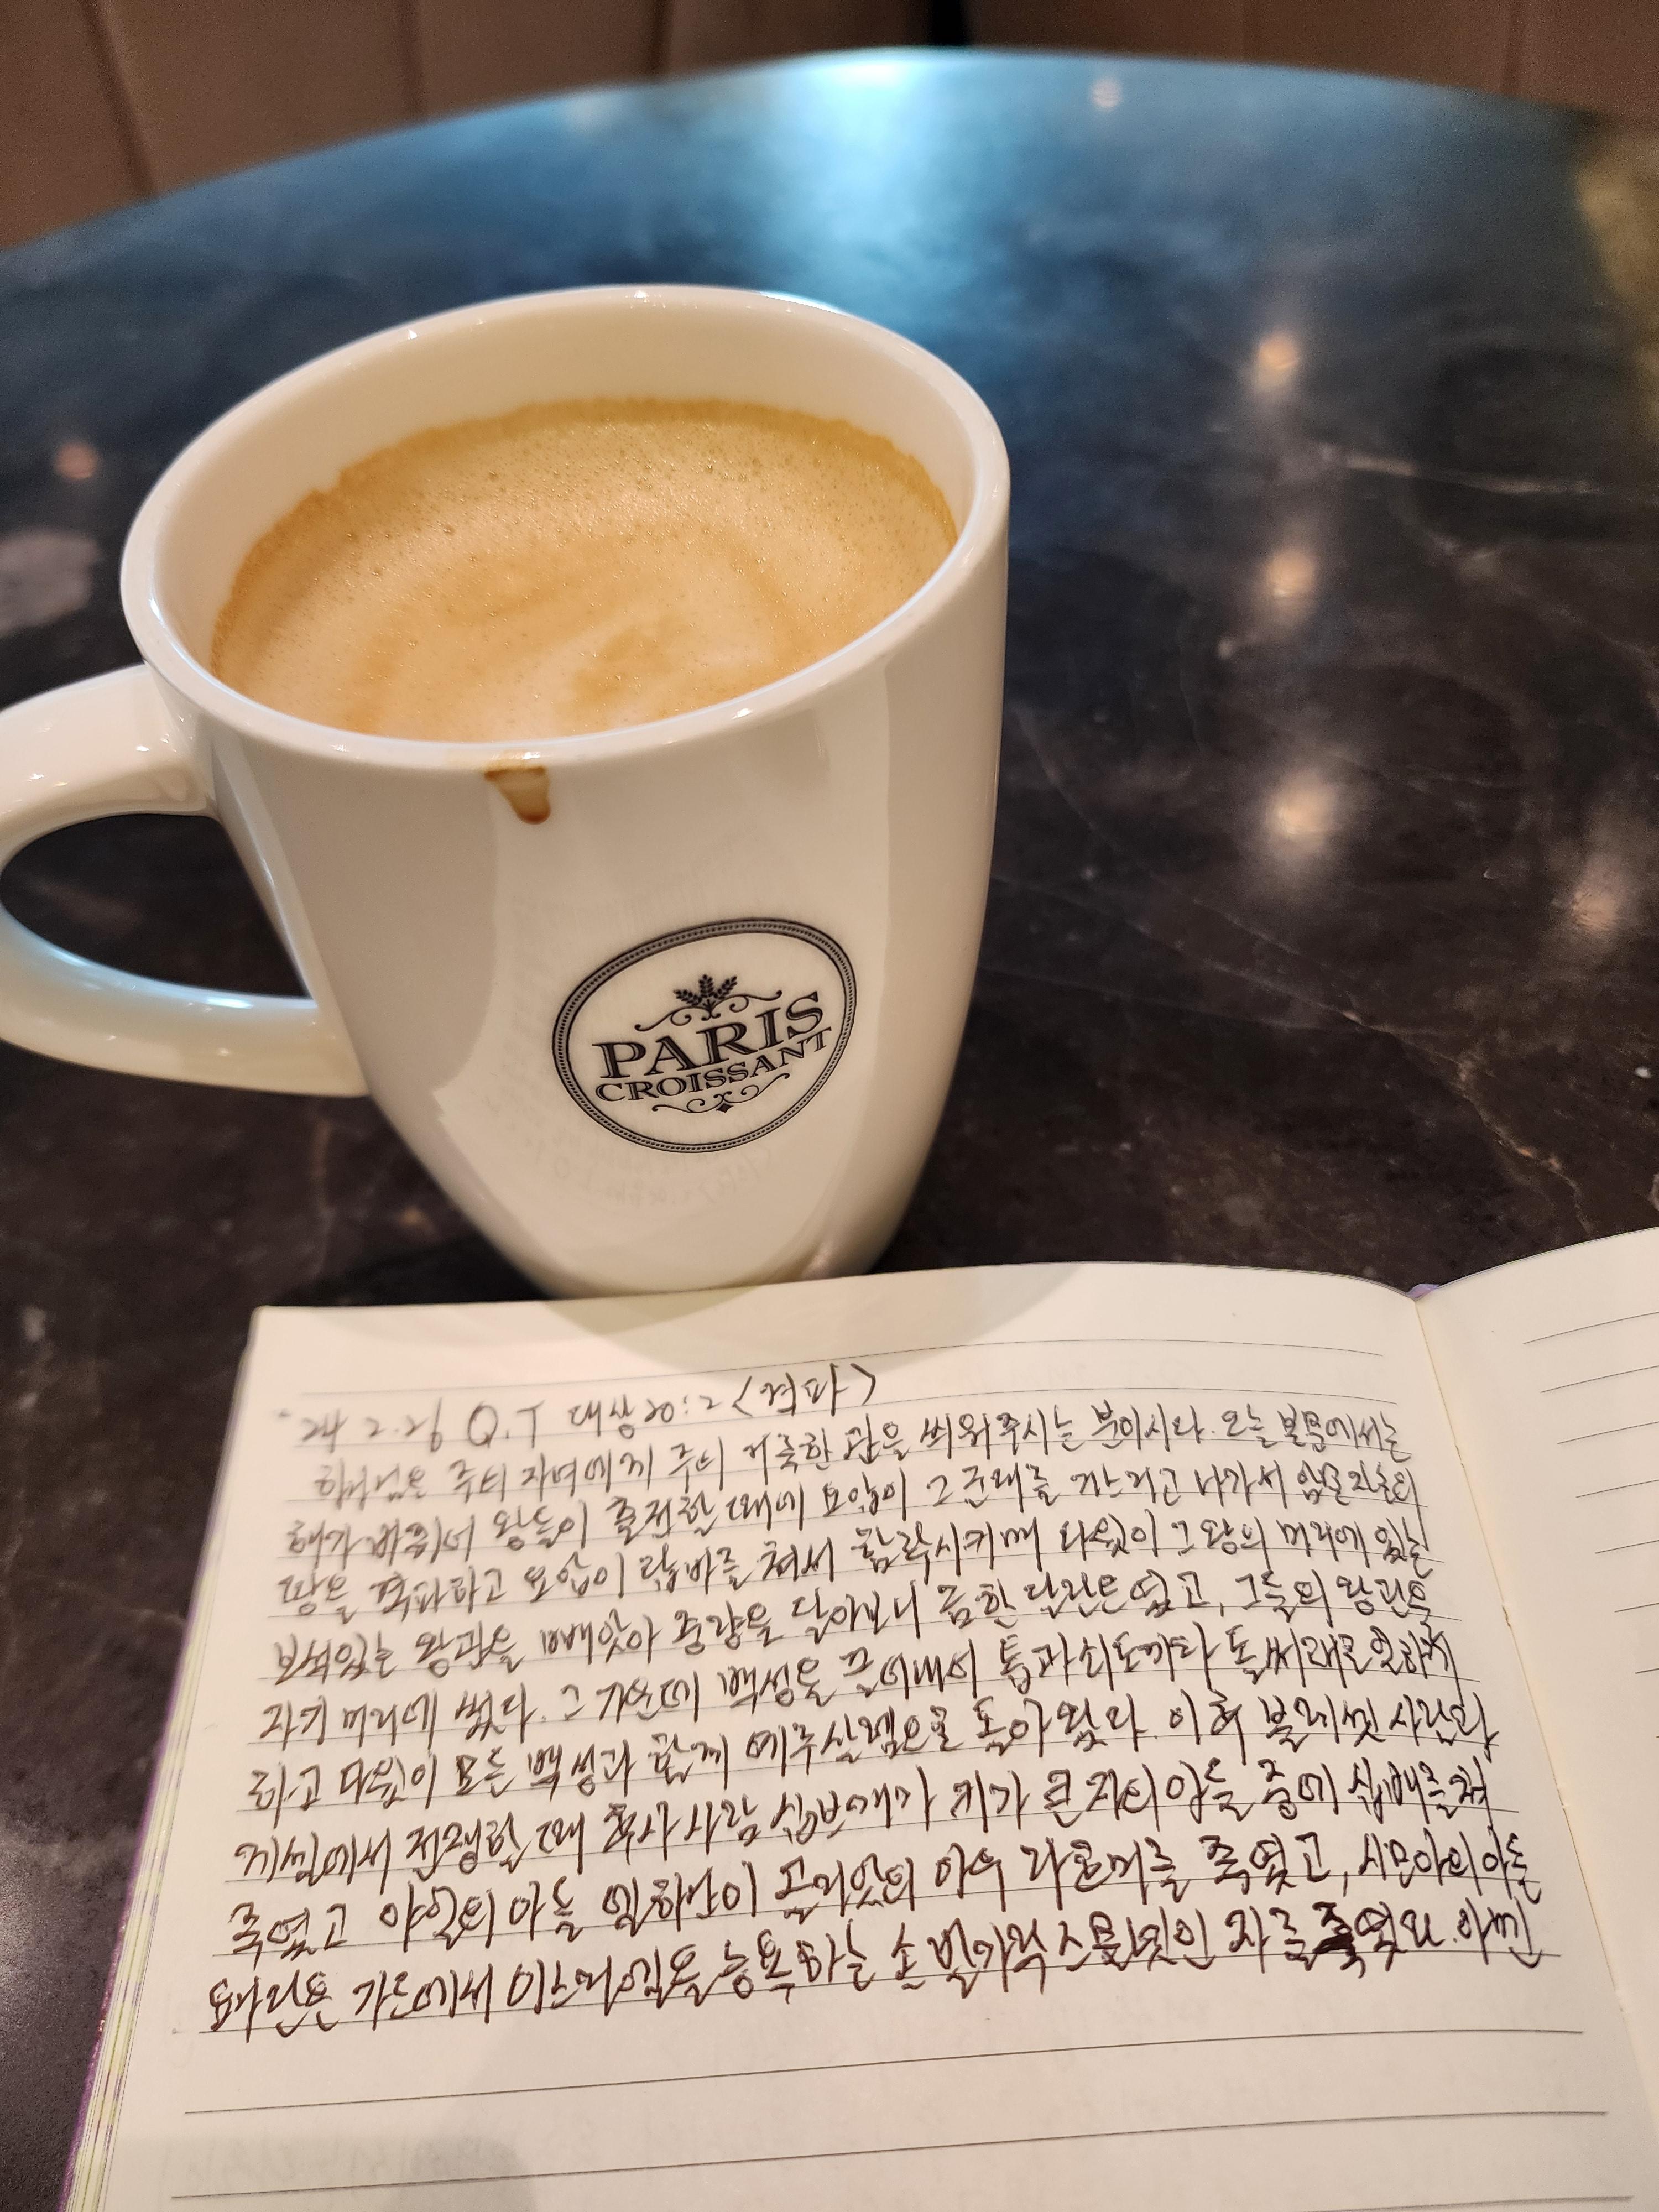 PARIS
CROISSANT
24 2.26 Q.T 대상20:2 <격파>
하나님은 주의 자녀에게 주의 거룩한 관을 씌워주시는 분이시라. 오늘 본문에서는
해가 바뀌어 왕들이 출전할 때에 요압이 그 군대를 거느리고 나가서 암몬자손의
땅을 격파하고 요압이 랍바를 쳐서 함락시키매 다윗이 그 왕의 머리에 있는
보석있는 왕관을 빼앗아 중량을 달아보니 금 한 달란트였고, 그들의 왕관을
자기 머리에 썼다. 그 가운데 백성을 끌어내어 톱과 쇠도끼와 돌써래로 일하게
하고 다윗이 모든 백성과 함께 예루살렘으로 돌아왔다. 이후 블레셋 사람과
게셀에서 전쟁할 때 후사 사람 십브개가 키가 큰 자의 아들 중에 십배를 쳐
죽였고 야일의 아들 엘하난이 골리앗의 아우 라흐미를 죽였고, 시므아의 아들
요나단은 가드에서 이스라엘을 능욕하는 손 발가락 스물넷인 자를 죽였다.